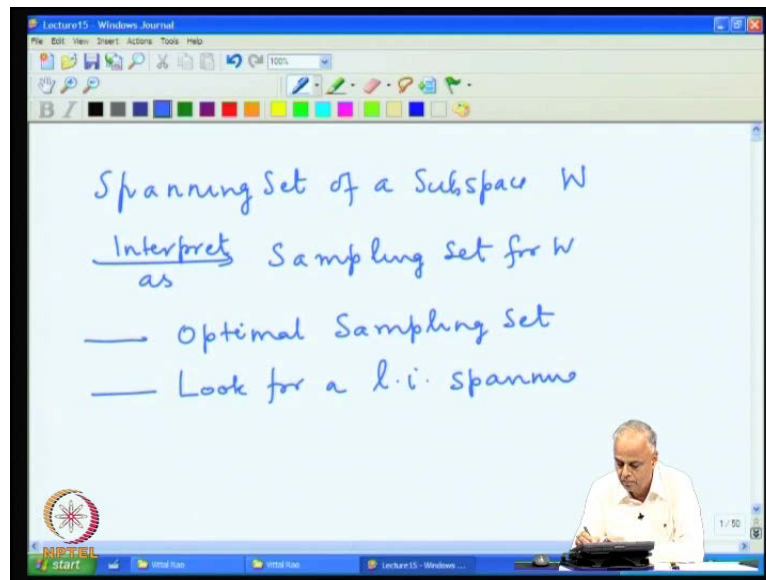 Lecture15 - Windows Journal
File Edit View Insert Actions Tools Help
100%
B I
Spanning Set of a Subspace W
Interpret as Sampling Set for W
Optimal Sampling Set
Look for a l.i. spanning
1 / 50
NPTEL
start Vittal Rao Vittal Rao Lecture15 - Windows ...